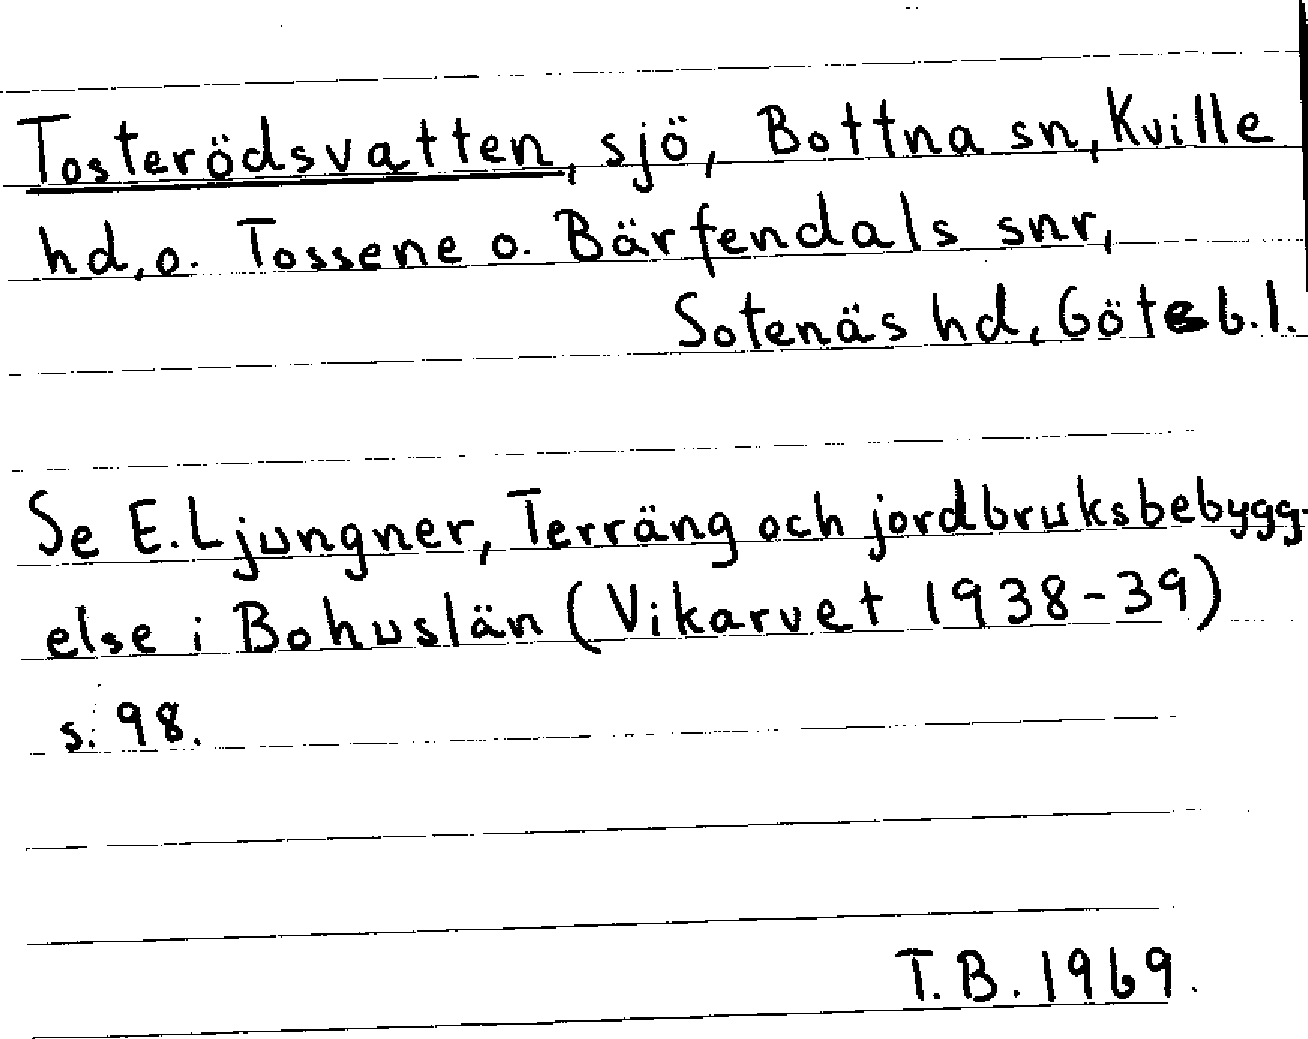 Tosterödsvatten, sjö, Bottna sn, Kville
hd, o. Tossene o. Bärfendals snr,
Sotenäs hd, Göteb. l.
Se E. Ljungner, Terräng och jordbruksbebygg-
else i Bohuslän (Vikarvet 1938-39)
s. 98.
T. B. 1969.